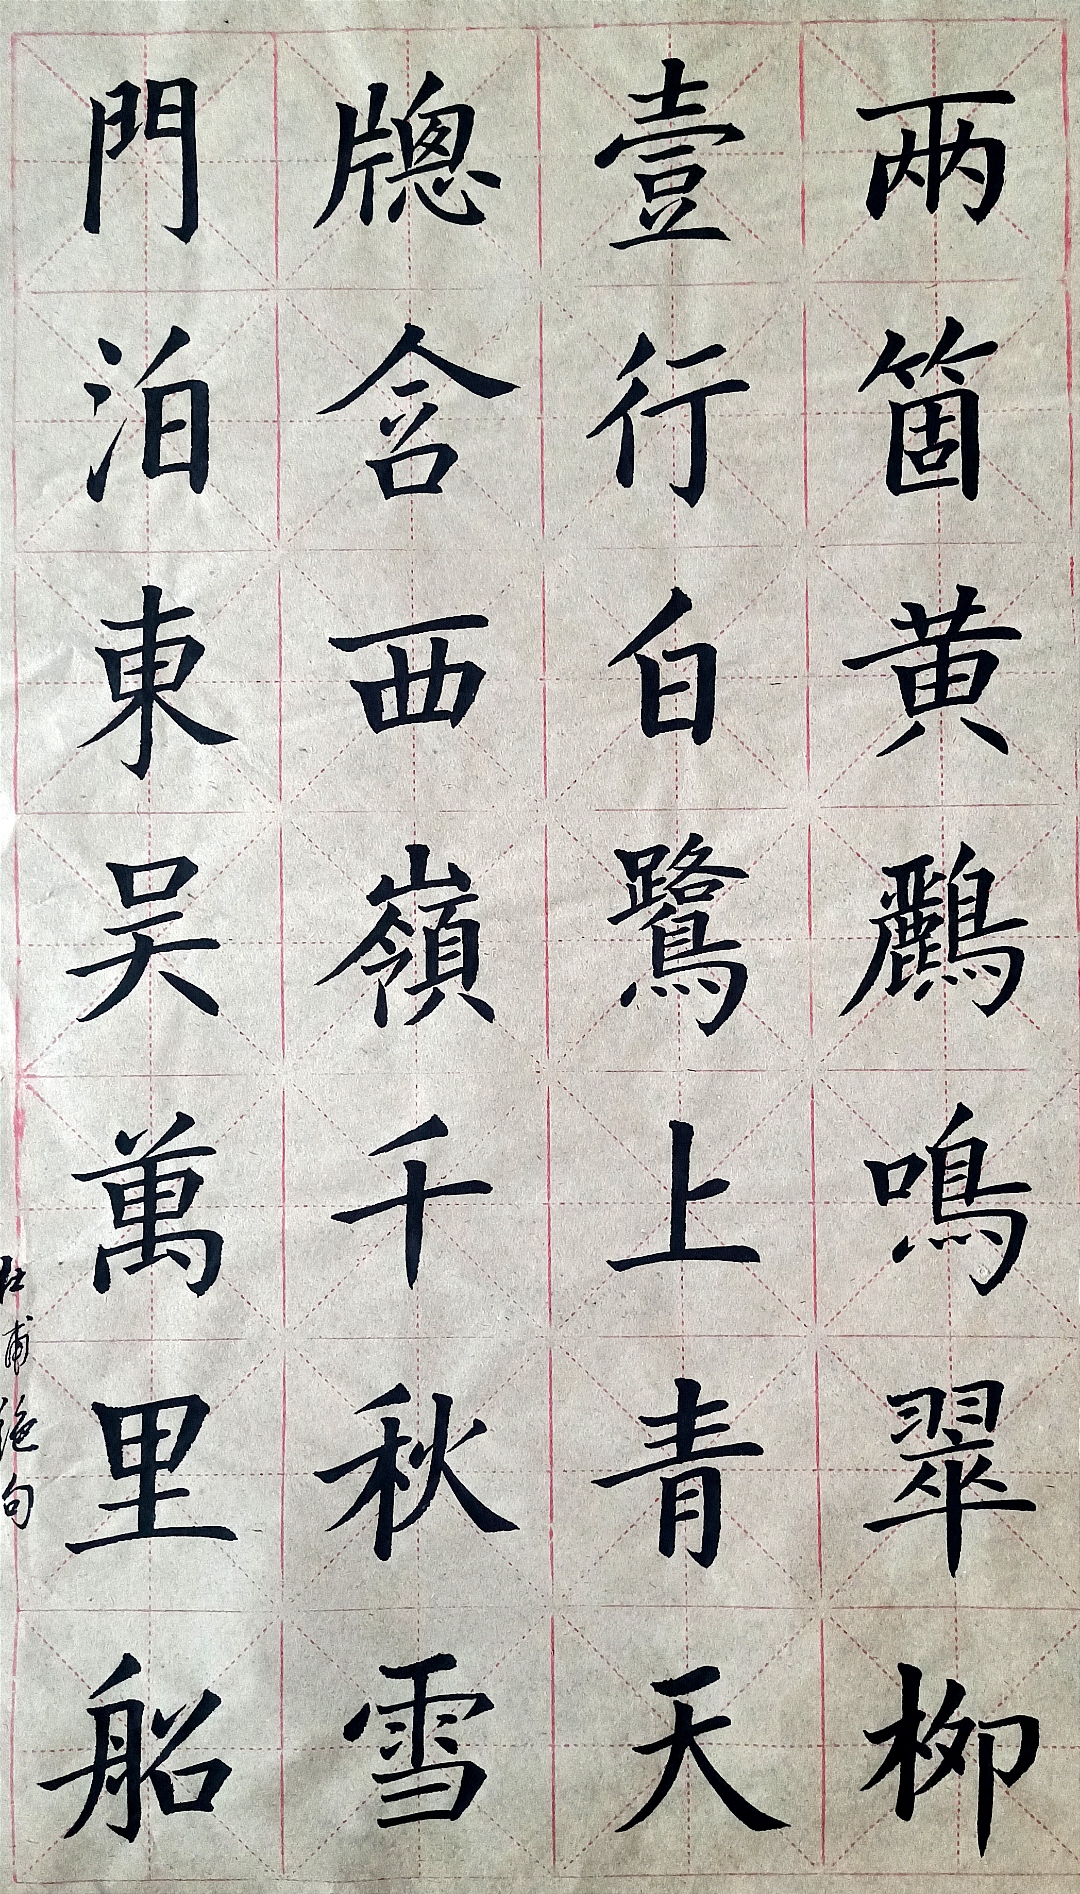 兩箇黄鸝鳴翠柳
壹行白鷺上青天
牎含西嶺千秋雪
門泊東吴萬里船
杜甫絶句